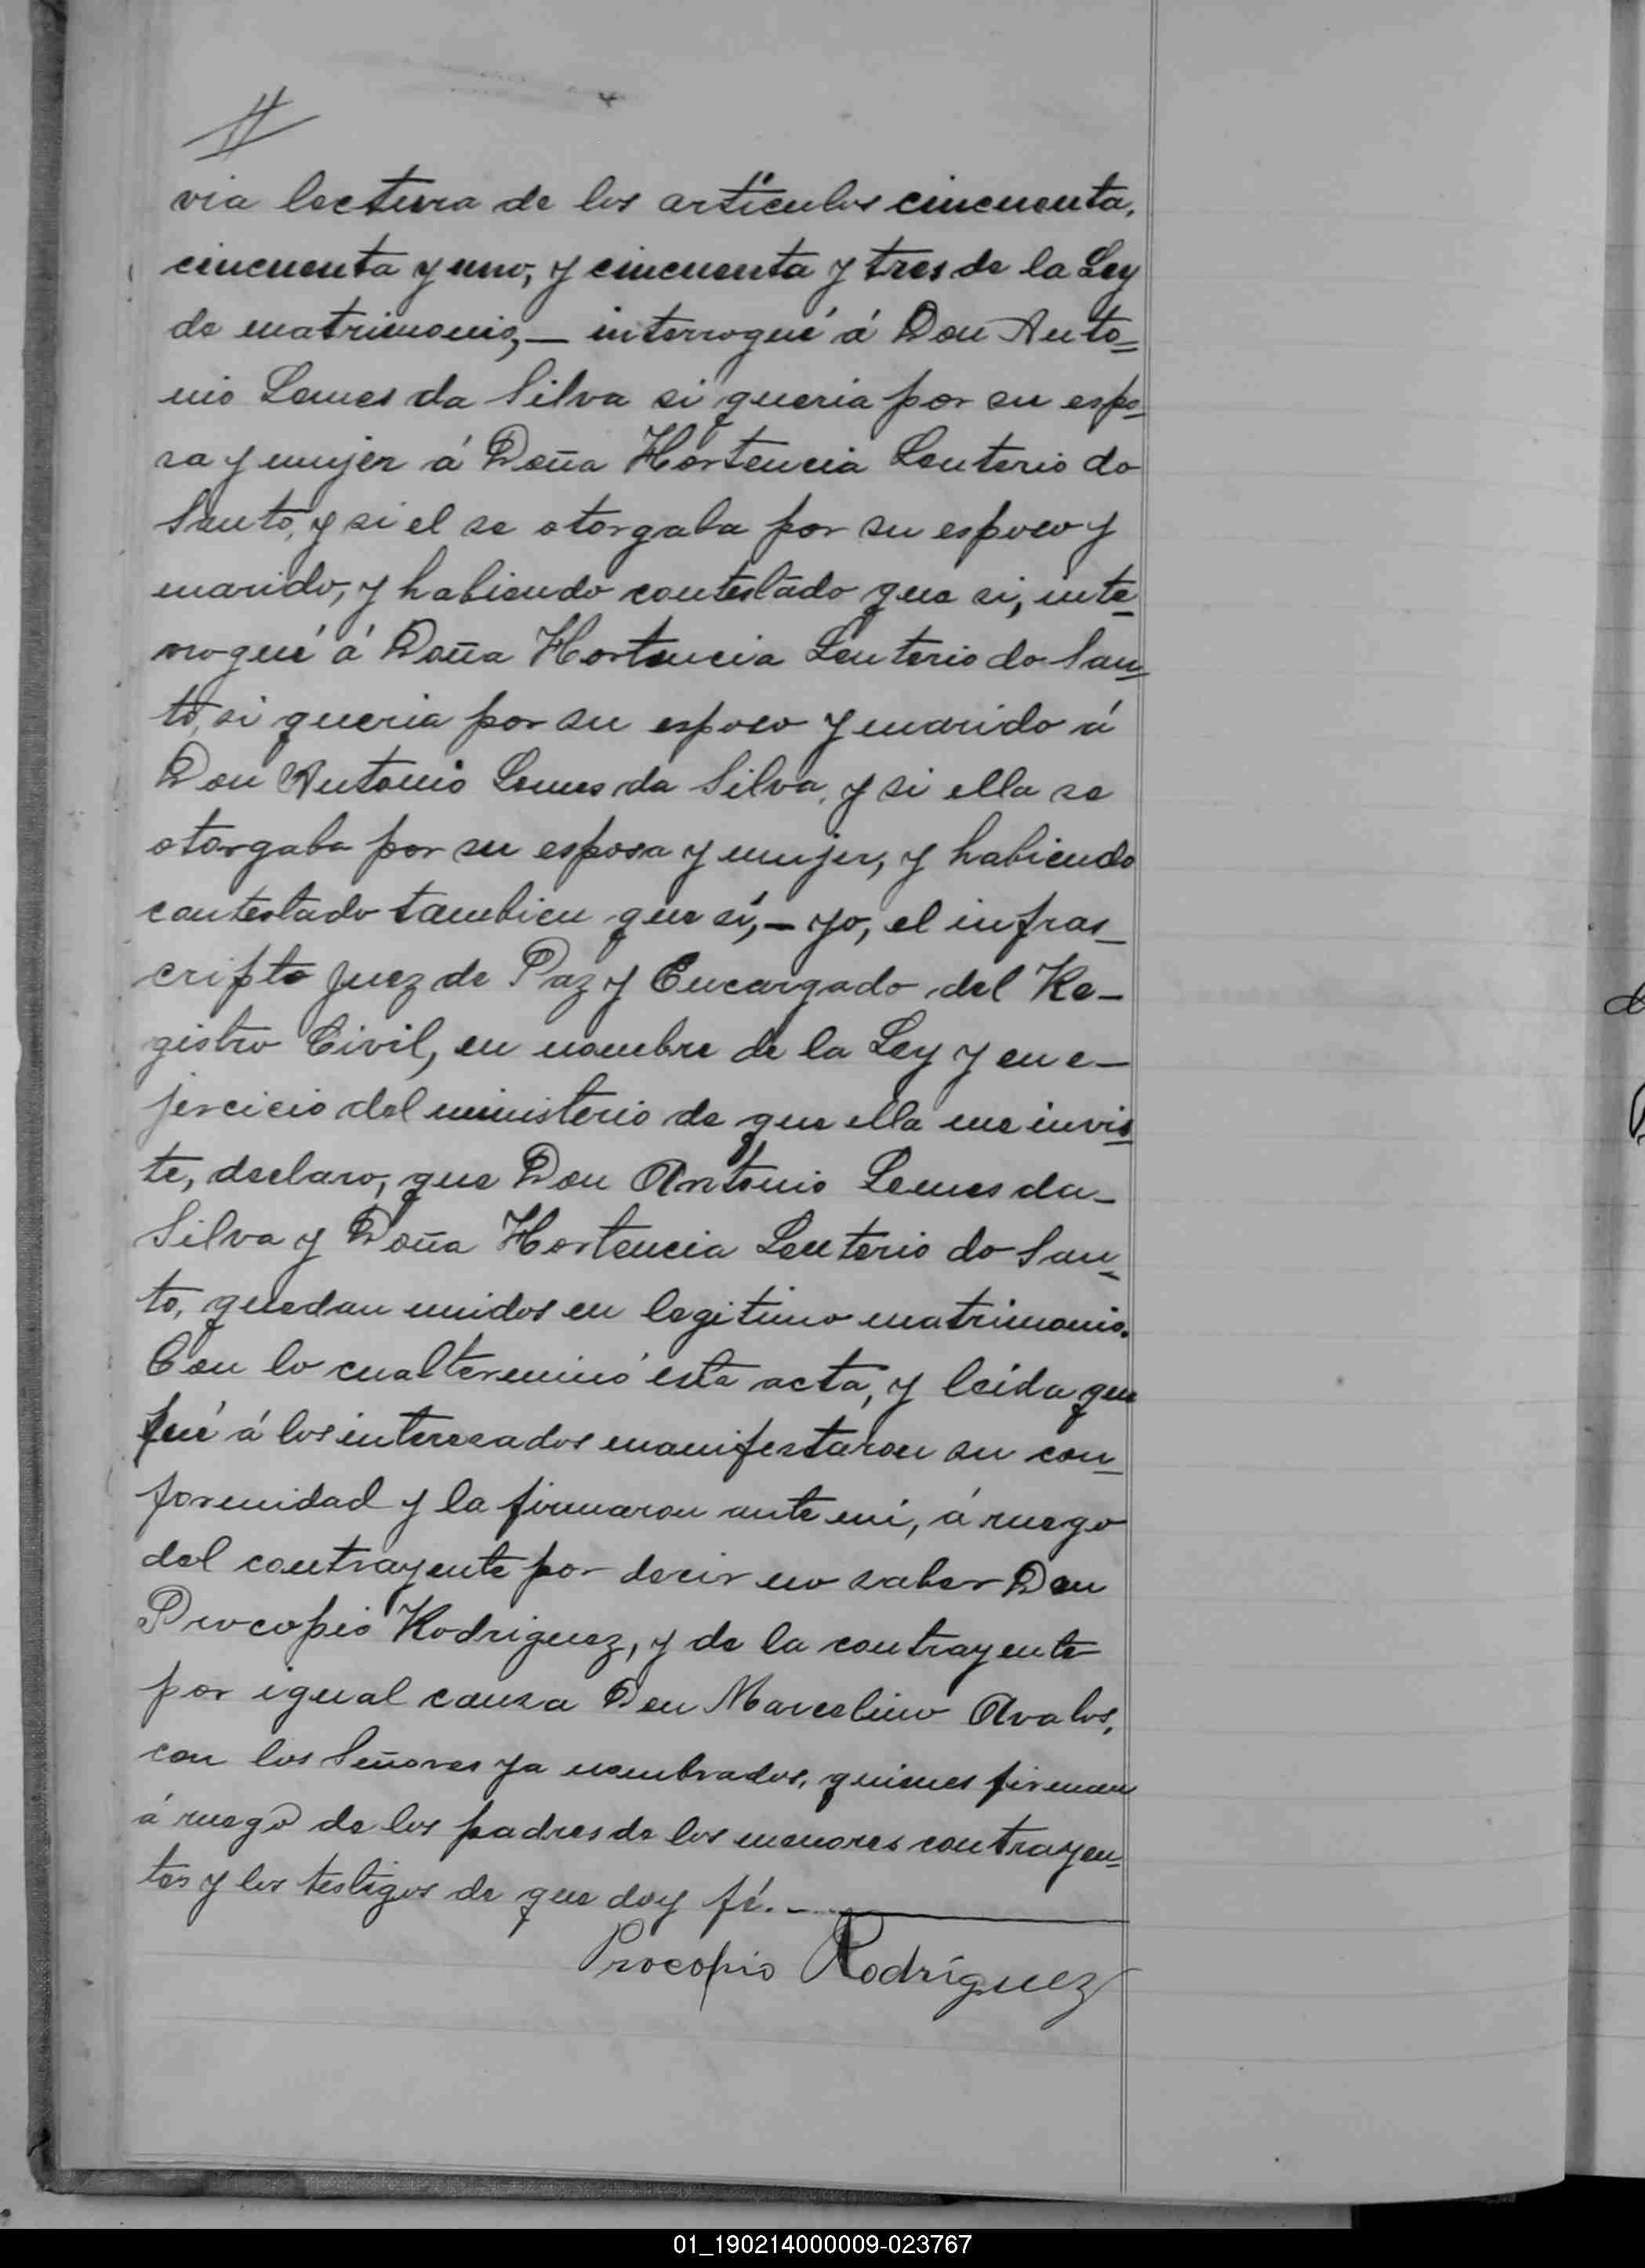 via lectura de los artículos cincuenta,
cincuenta y uno, y cincuenta y tres de la Ley
de matrimonio,— interrogué á Don Anto=
nio Lemes da Silva si queria por su espo-
sa y mujer á Doña Hortencia Leuterio do
Santo, y si el se otorgaba por su esposo y
marido, y habiendo contestado que si, inte-
rrogué á Doña Hortencia Leuterio do San=
to, si queria por su esposo y marido á
Don Antonio Lemes da Silva, y si ella se
otorgaba por su esposa y mujer, y habiendo
contestado tambien que sí,— yo, el infras-
cripto Juez de Paz y Encargado del Re-
gistro Civil, en nombre de la Ley y en e-
jercicio del ministerio de que ella me invis-
te, declaro, que Don Antonio Lemes da-
Silva y Doña Hortencia Leuterio do San=
to, quedan unidos en legitimo matrimonio.
Con lo cual terminó esta acta, y leida que
fué á los interesados manifestaron su con-
formidad y la firmaron ante mi, á ruego
del contrayente por decir no saber Don
Procopio Rodriguez, y de la contrayente
por igual causa Don Marcelino Avalos,
con los Señores ya nombrados, quienes firman
á ruego de los padres de los menores contrayen=
tes y los testigos de que doy fé.—
Procopio Rodríguez
01_190214000009-023767